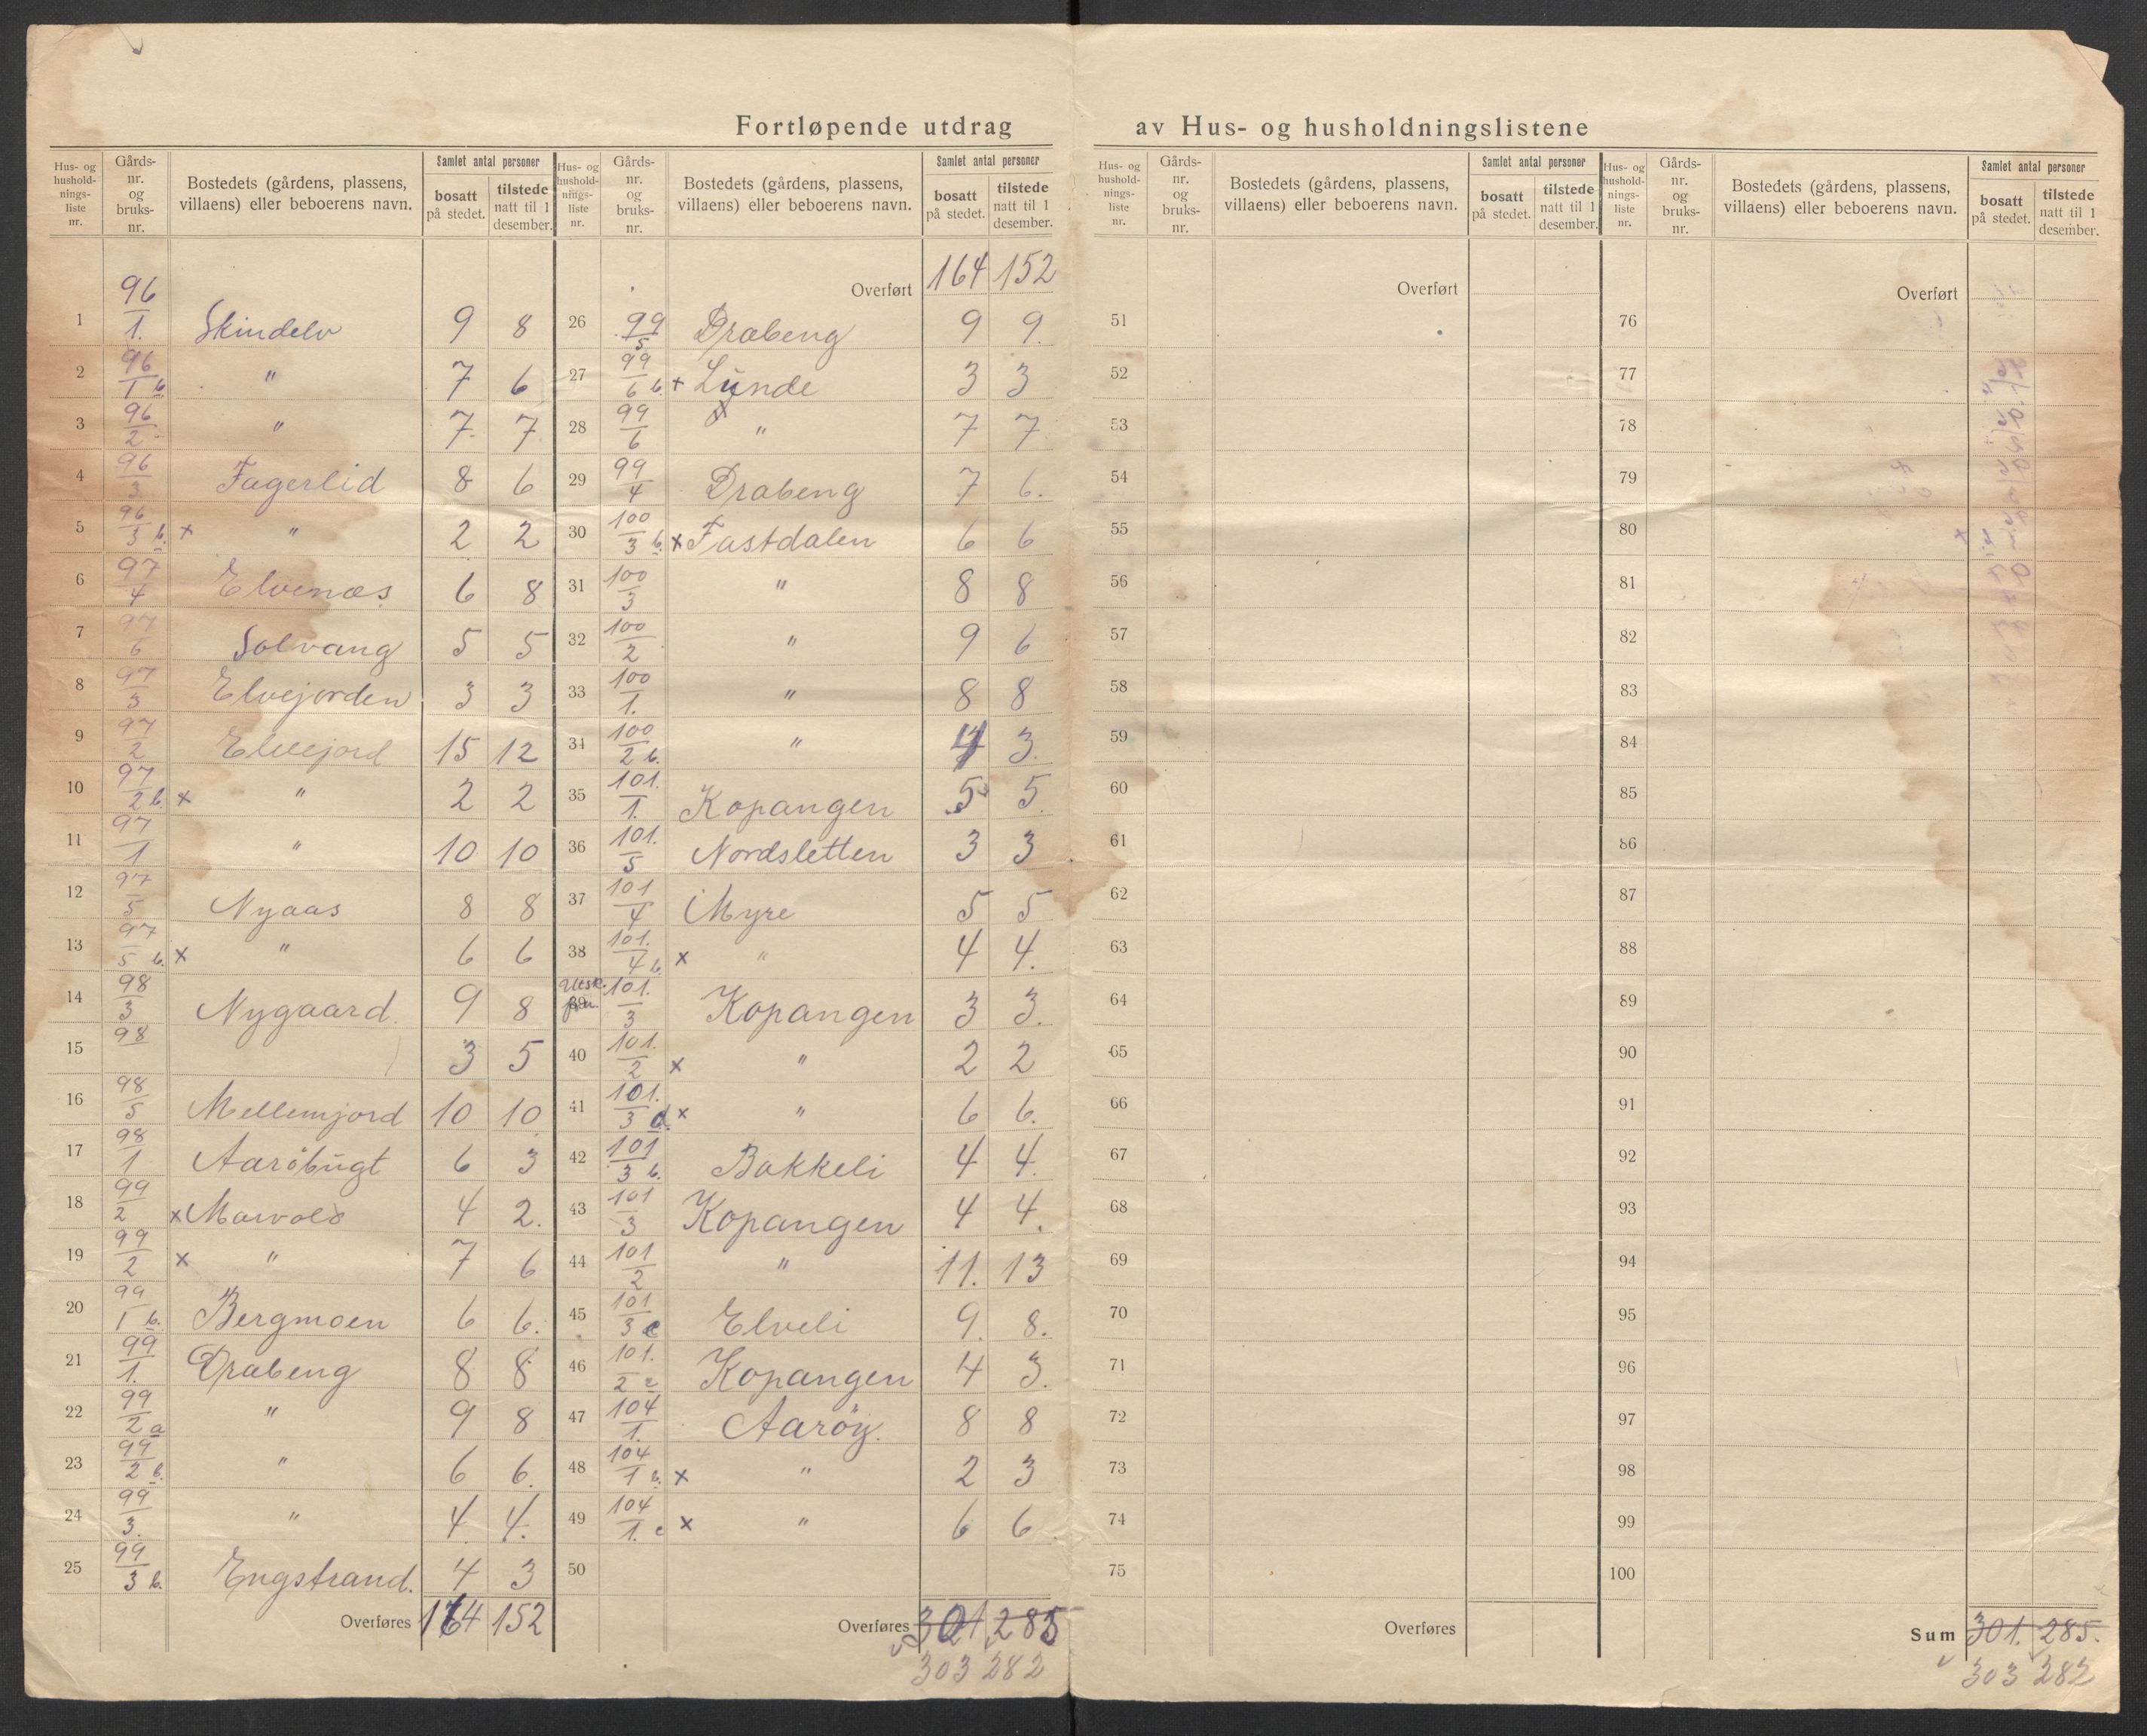 Fortløpende utdrag av Hus- og husholdningslistene
Hus- og husholdningsliste nr. | Gårdsnr. og bruksnr. | Bostedets (gårdens, plassens, villaens) eller beboerens navn. | Samlet antal personer | bosatt på stedet. | tilstede natt til 1 desember.
1 96/1. Skindelv 9 8
2 96/1 b. " 7 6
3 96/2 " 7 7
4 96/3 Fagerlid 8 6
5 96/3 b. x " 2 2
6 97/4 Elvenæs 6 8
7 97/6 Solvang 5 5
8 97/3 Elvejorden 3 3
9 97/2 Elvejord 15 12
10 97/2 b. x " 2 2
11 97/1 " 10 10
12 97/5 Nyaas 8 8
13 97/5 b. x " 6 6
14 98/3 Nygaard. 9 8
15 98 3 5
16 98/5 Mellemjord 10 10
17 98/1 Aaröbugt 6 3
18 99/2 x 4 2.
19 99/2 x " 7 6
20 99/1 b. Bergmoen 6 6.
21 99/1. Drabeng 8 8
22 99/2 a " 9 8
23 99/2 b. " 6 6.
24 99/3. " 4 4.
25 99/3 b. Engstrand. 4 3
Overføres 164 152
Hus- og husholdningsliste nr. | Gårdsnr. og bruksnr. | Bostedets (gårdens, plassens, villaens) eller beboerens navn. | Samlet antal personer | bosatt på stedet. | tilstede natt til 1 desember.
Overført 164 152
26 99/5 Drabeng 9 9.
27 99/6 b. x Lunde 3 3
28 99/6 x " 7 7
29 99/4 Drabeng 7 6.
30 100/3 b. x Fastdalen 6 6
31 100/3 " 8 8
32 100/2 " 9 6
33 100/1. " 8 8
34 100/2 b. " 4 3.
35 101./1. Kopangen 5 5.
36 101./5 Nordsletten 3 3
37 101/4 Myre 5 5
38 101./4 b. x " 4 4.
39 101./3 Kopangen 3 3.
40 101./2 x " 2 2
41 101./3 d. x " 6 6.
42 101/3 b. Bakkeli 4 4.
43 101/3 Kopangen 4 4.
44 101/2 " 11. 13
45 101/3 c Elveli 9. 8.
46 101./2 c Kopangen 4 3.
47 104/1. Aaröy. 8 8
48 104/1 b. x " 2 3
49 104/1. c x " 6 6
50
Overføres 301 285
303 282
Hus- og husholdningsliste nr. | Gårdsnr. og bruksnr. | Bostedets (gårdens, plassens, villaens) eller beboerens navn. | Samlet antal personer | bosatt på stedet. | tilstede natt til 1 desember.
Overført
51
52
53
54
55
56
57
58
59
60
61
62
63
64
65
66
67
68
69
70
71
72
73
74
75
Overføres
Hus- og husholdningsliste nr. | Gårdsnr. og bruksnr. | Bostedets (gårdens, plassens, villaens) eller beboerens navn. | Samlet antal personer | bosatt på stedet. | tilstede natt til 1 desember.
Overført
76
77
78
79
80
81
82
83
84
85
86
87
88
89
90
91
92
93
94
95
96
97
98
99
100
Sum 301. 285.
303 282